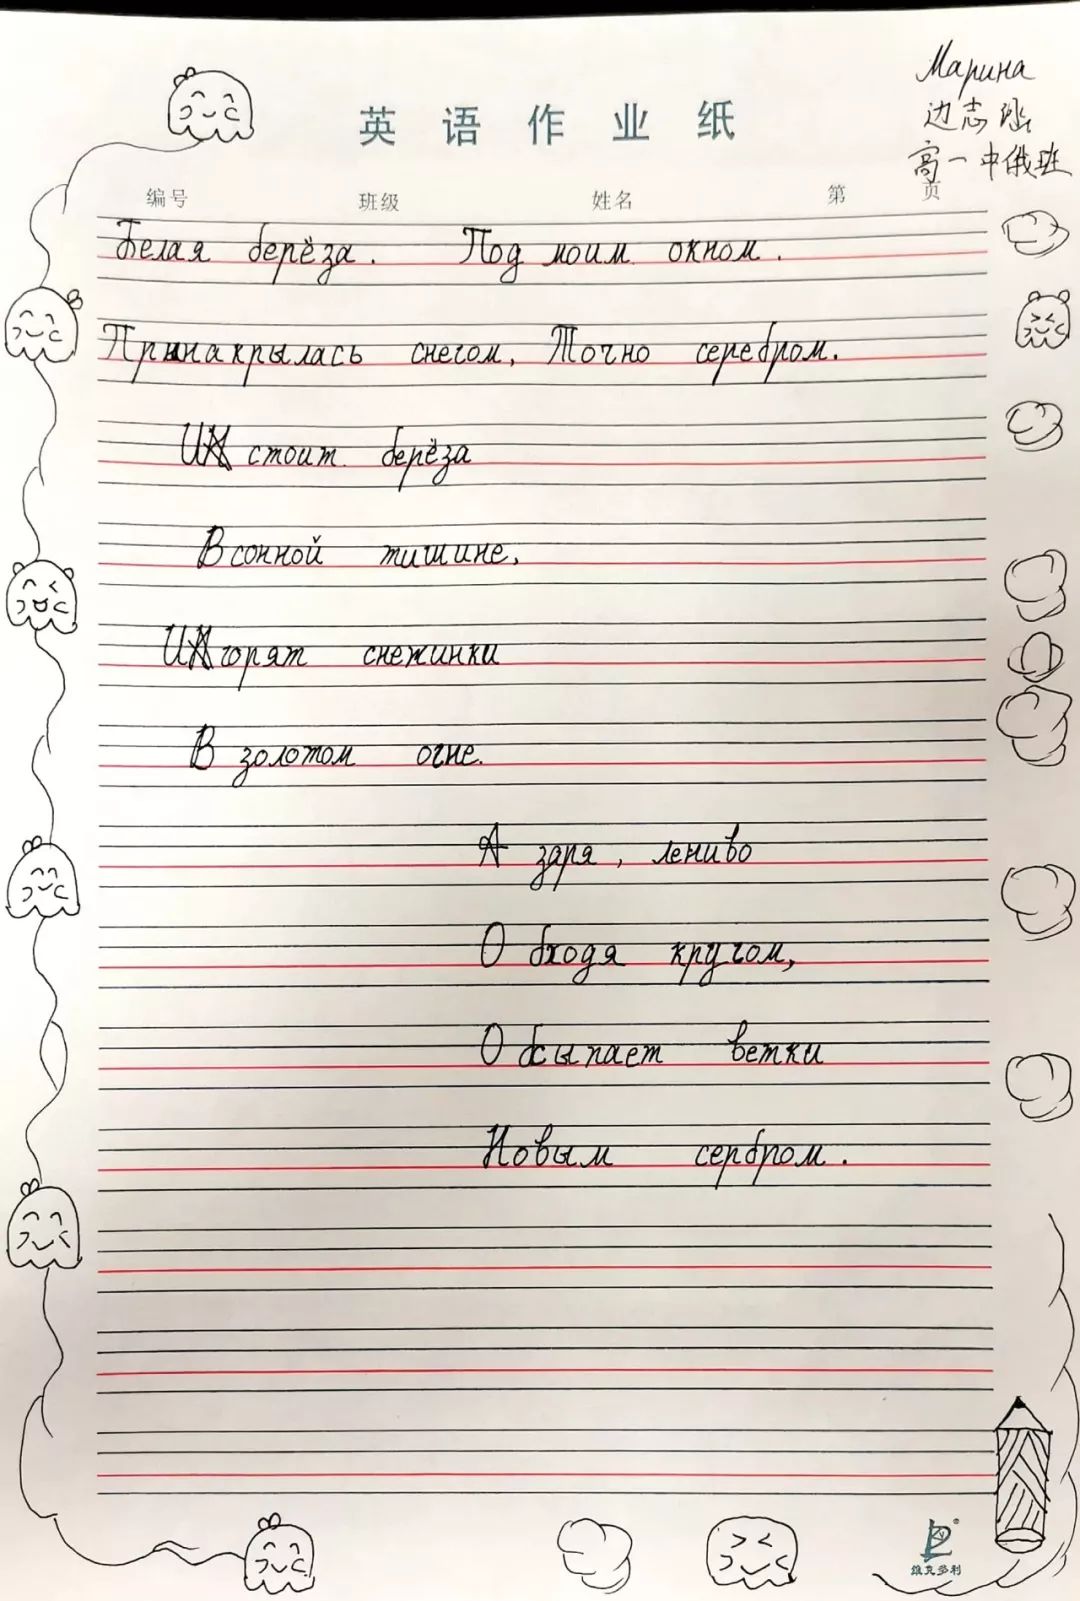 Марина
边志
高一中俄班
英语作业纸
编号 班级 姓名 第 页
Белая берёза. Под моим окном.
Принакрылась снегом, Точно серебром.
И стоит берёза
В сонной тишине,
И горят снежинки
В золотом огне.
А заря, лениво
Обходя кругом,
Обсыпает ветки
Новым сербром.
维克多利